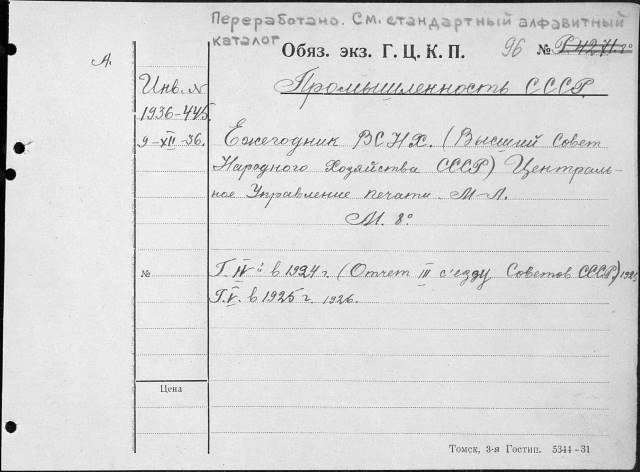 Переработано. См. стандартный алфавитный
каталог
Обяз. экз. Г. Ц. К. П. 96 № Р 4271 8°
А.
Инв. N
1936-445
9-XII-36.
Промышленность СССР.
Ежегодник ВСНХ. (Высший Совет
Народного Хозяйства СССР) Централь-
ное Управление печати. М-Л.
М. 8°
№
Г. IV: в 1924 г. (Отчет III с'езду Советов СССР) 1925
Г. V. в 1925 г. 1926.
Цена
Томск, 3-я Гостип. 5344-31